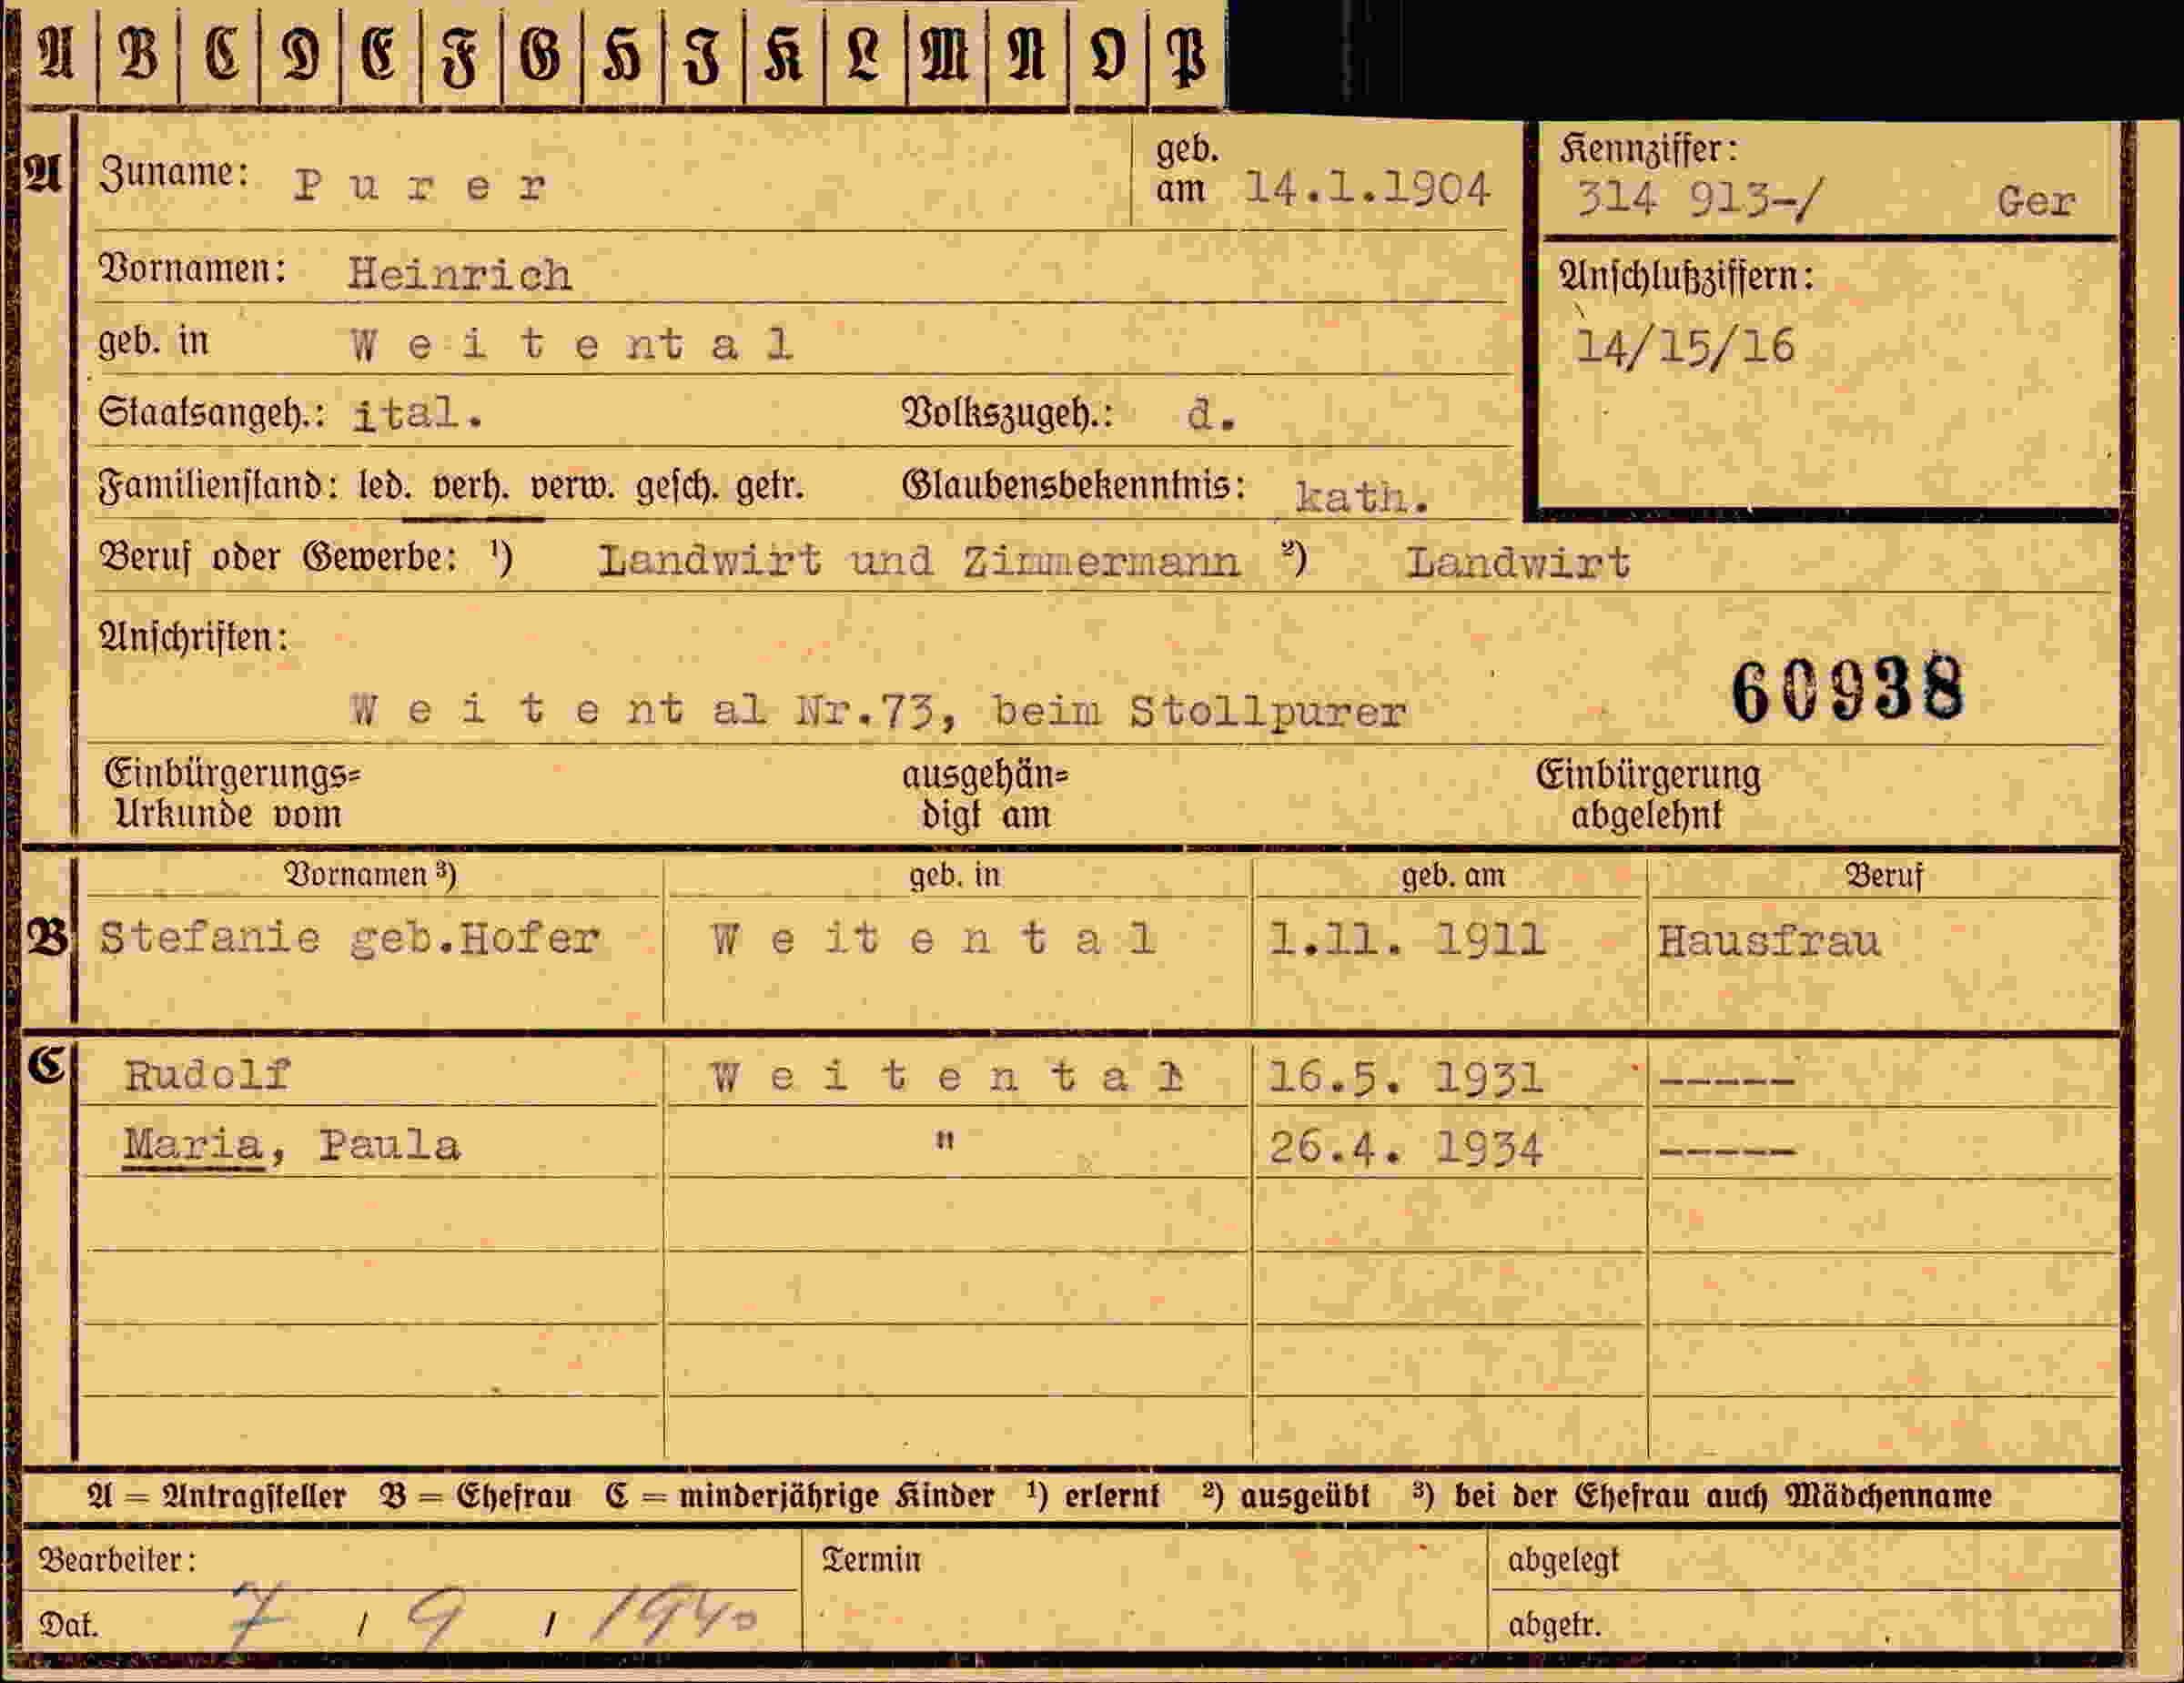 A B C D E F G H I K L M N O P
A Zuname: Purer geb. am 14.1.1904 Kennziffer: 314 913-/ Ger
Vornamen: Heinrich Anschlußziffern:
geb. in Weitental 14/15/16
Staatsangeh.: ital. Volkszugeh.: d.
Familienstand: led. verh. verw. gesch. getr. Glaubensbekenntnis: kath.
Beruf oder Gewerbe: ¹) Landwirt und Zimmermann ²) Landwirt
Anschriften:
Weitental Nr.73, beim Stollpurer 60938
Einbürgerungs= ausgehän= Einbürgerung
Urkunde vom digt am abgelehnt
Vornamen ³) geb. in geb. am Beruf
B Stefanie geb.Hofer Weitental 1.11. 1911 Hausfrau
C Rudolf Weitental 16.5. 1931 -----
Maria, Paula " 26.4. 1934 -----
A = Antragsteller B = Ehefrau C = minderjährige Kinder ¹) erlernt ²) ausgeübt ³) bei der Ehefrau auch Mädchenname
Bearbeiter: Termin abgelegt
Dat. 7 / 9 / 1940 abgetr.